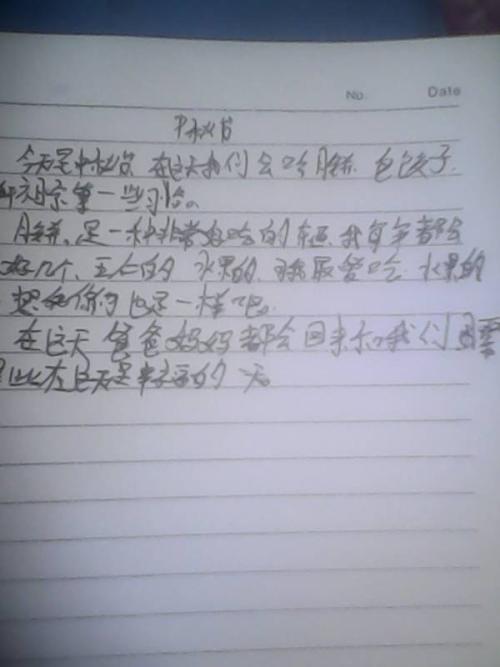 No. Date
中秋节
今天是中秋节 在这天我们会吃月饼 包饺子
祖宗等一些习俗。
月饼、是一种非常好吃的东西 我每年都会
好几个、五仁的 水果的、我最爱吃 水果的
想和你们也是一样吧。
在这天 爸爸妈妈都会回来和我们
此在这天是幸福的一天。